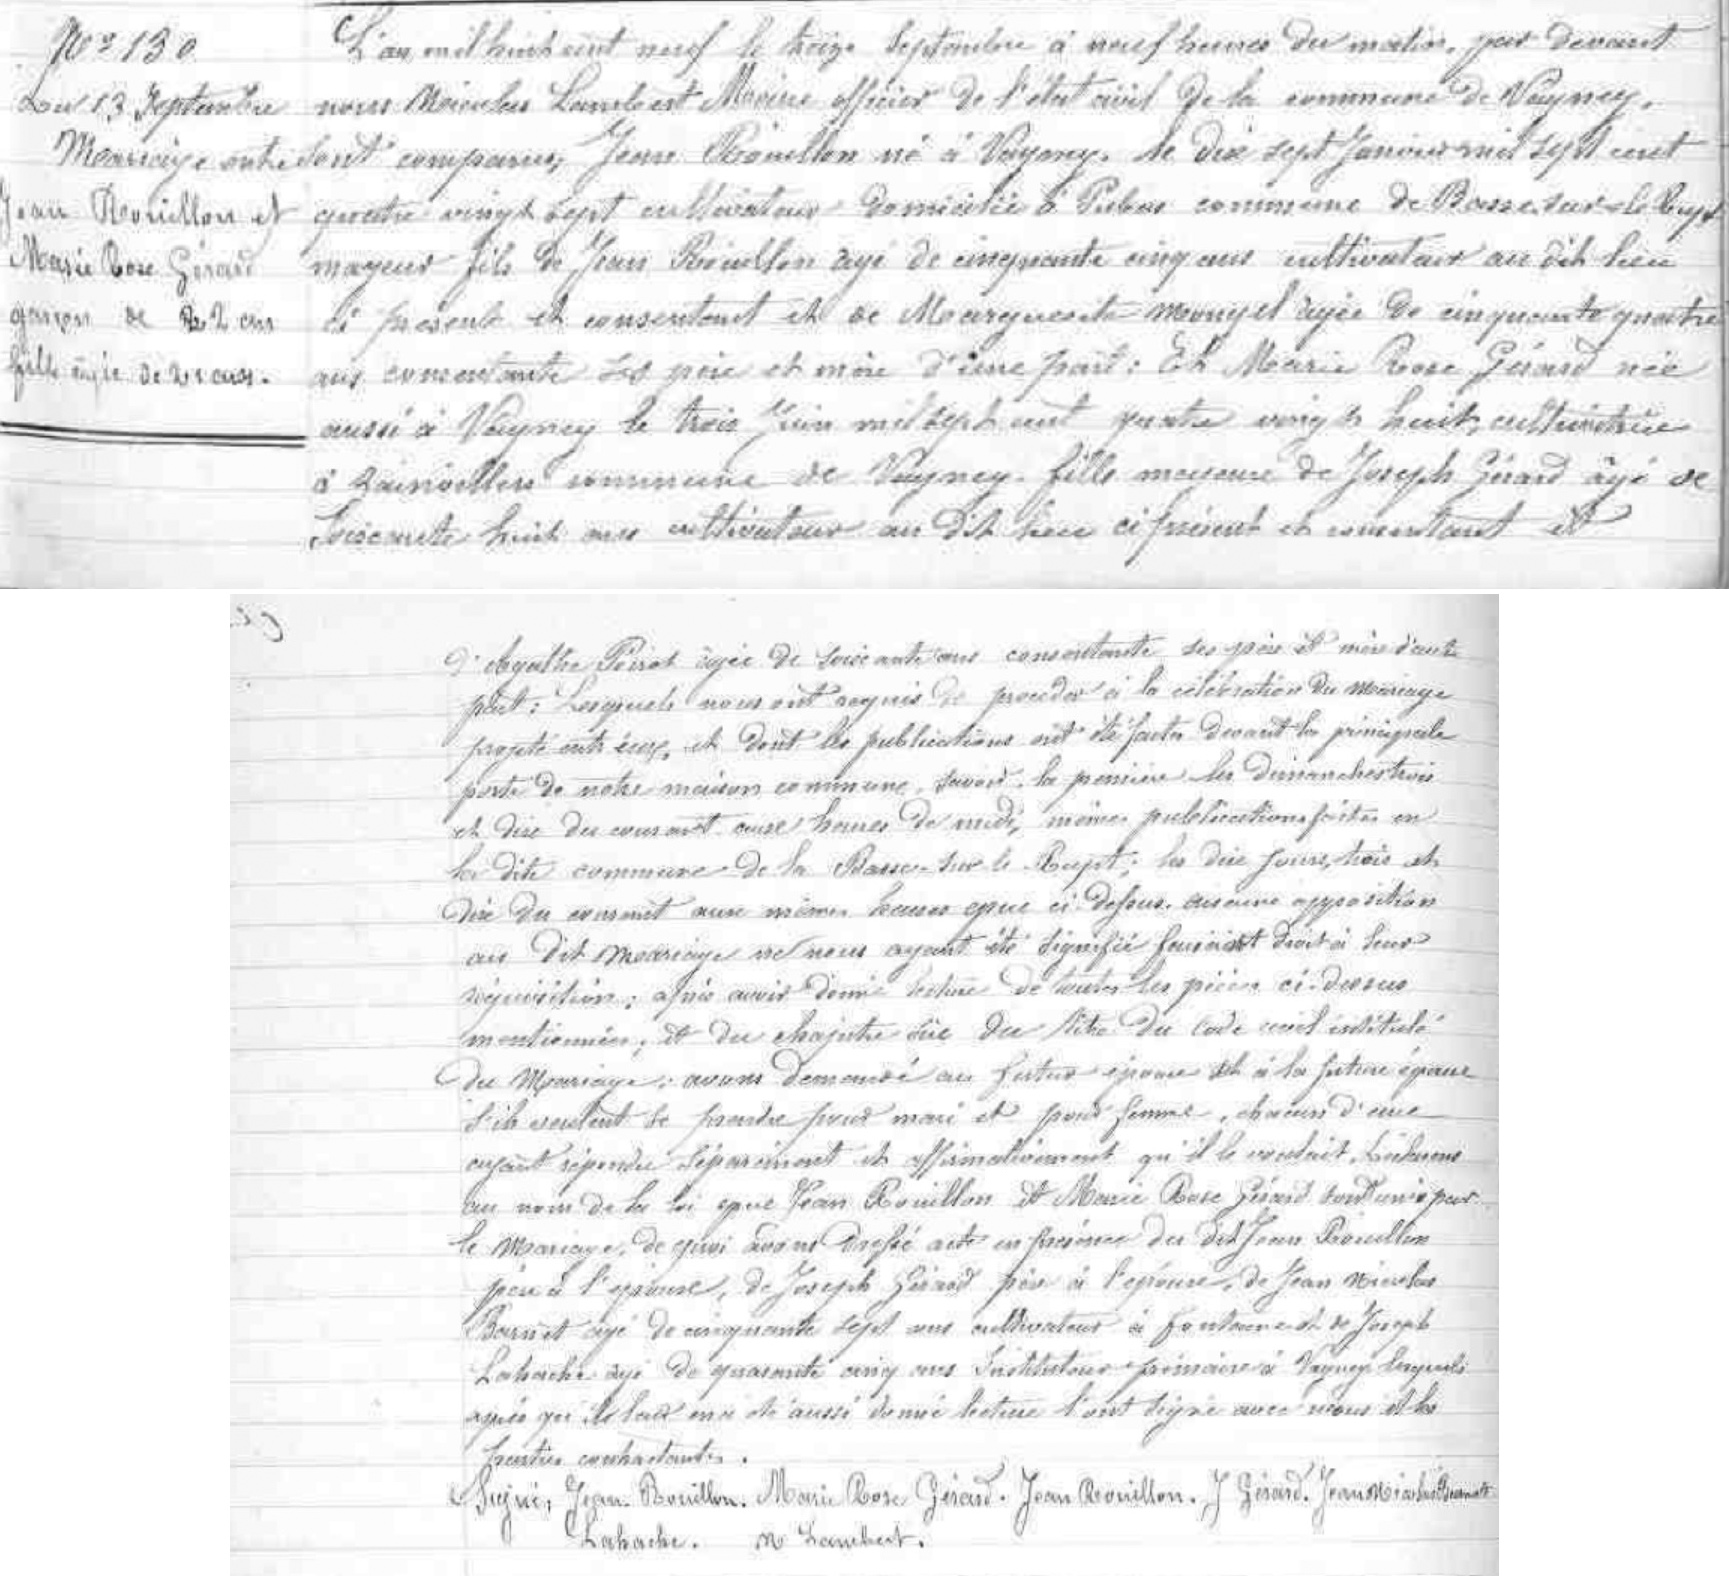 No 130
Du 13 Septembre
Mariage entre
Jean Rouillon et
Marie Rose Gérard
garçon de 22 ans
fille âgée de 21 ans.
L'an mil huit cent neuf le treize Septembre à neuf heures du matin, par devant
nous Nicolas Lambert Maire officier de l'état civil de la commune de Vagney,
sont comparus, Jean Rouillon né à Vagney, le dix sept Janvier mil sept cent
quatre vingt sept cultivateur domicilié à commune de Basse-sur-le-Rupt
mayeur fils de Jean Rouillon âgé de cinquante cinq ans cultivateur au dit lieu
ci présent et consentant et de Marguerite Mougel âgée de cinquante quatre
ans consentante ses père et mère d'une part: Et Marie Rose Gérard née
aussi à Vagney le trois Juin mil sept cent quatre vingt huit, cultivatrice
à Zainvillers commune de Vagney. fille mayeure de Joseph Gérard âgé de
soixante huit ans cultivateur au dit lieu ci présent et consentant et
d'Agathe Poirot âgée de soixante ans consentante ses père et mère d'autre
part: Lesquels nous ont requis de procéder à la célébration du mariage
projeté entr'eux, et dont les publications ont été faites devant la principale
porte de notre maison commune, savoir, la première les dimanches trois
et dix du courant onze heures de midi, mêmes publications faites en
la dite commune de la Basse-sur-le-Rupt; les dix jours, trois et
dix du courant aux mêmes heures que ci-dessus. aucune opposition
au dit mariage ne nous ayant été signifié faisant droit à leur
réquisition; après avoir donné lecture de toutes les pièces ci-dessus
mentionnées, et du chapitre six du titre du code civil intitulé
du Mariage; avons demandé au futur époux et à la future épouse
s'ils veulent se prendre pour mari et pour femme, chacun d'eux
ayant répondu séparément et affirmativement qu'il le voulait, déclarons
au nom de la loi que Jean Rouillon et Marie Rose Gérard sont unis par
le Mariage, de quoi avons dressé acte en présence du dit Jean Rouillon
père à l'époux, de Joseph Gérard père à l'épouse, de Jean Nicolas
âgé de cinquante sept ans cultivateur à et de Joseph
Lahache âgé de quarante cinq ans Instituteur primaire à Vagney lesquels
après qu'il leur en a été aussi donné lecture l'ont signé avec nous et les
parties contractantes.
Signé, Jean Rouillon. Marie Rose Gérard. Jean Rouillon. J Gérard. Jean Nicolas
Lahache. N Lambert.